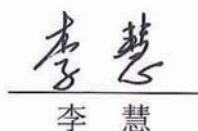 李慧
李 慧